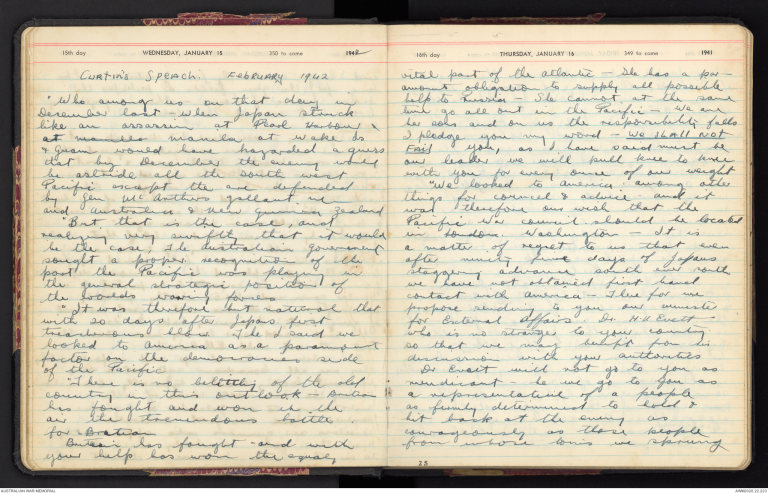 15th day WEDNESDAY, JANUARY 15 350 to come 1942
CURTIN'S SPEACH. FEBRUARY 1942
"Who among us on that day in
December last - when Japan struck
like an assassin at Pearl Harbour &
at manilla manila at wake is
& Guam would have hazarded a guess
that by December the enemy would
be astride all the south west
Pacific except the are defended
by Gen McArthurs gallant me
and Australia & New Guinea, Zealand
"But that is the case, and
realizing very swiftly that it would
be the case, The Australian Government
sought a proper recognition of the
part the Pacific was playing in
the general strategic position of
the worlds waring forces
"It was therefore but natural that
with 20 days after Japans first
treacherous blow The I said we
looked to America as a paramount
factor on the democracies side
of the Pacific
"There is no belittling of the old
country in this outlook - Britain
has fought and won in the
air the tremendous battle
for Britain
Britain has fought - and with
your help has won the equal,
16th day THURSDAY, JANUARY 16 349 to come 1941
vital part of the atlantic - She has a par-
amount obligation to supply all possible
help to Russia - She cannot at the same
time go all out in the Pacific - We are
her sons and on us the responsibility falls
I pledge you my word - We SHALL NOT
FAIL you, as I have said must be
our leader we will pull knee to knee
with you for every ounce of our weight
"We looked to america among other
things for council & advice and it
was therefore our wish that the
Pacific War Council should be located
in London. Washington - It is
a matter of regret to us that even
after ninety five days of Japans
staggering advance south ever south
we have not obtained first hand
contact with America - There for we
propose sending to you our minister
for External Affairs Dr. H. V. Evatt -
who is no stranger to your country
so that we may benefit from his
discussion with your authorities
Dr Evatt will not go to you as
mendicant - he we go to you as
a representative of a people
as firmly determined to hold &
hit back at the enemy as
courageously as those people
from whose loins we sprung
25
AUSTRALIAN WAR MEMORIAL
AWM2020.22.223